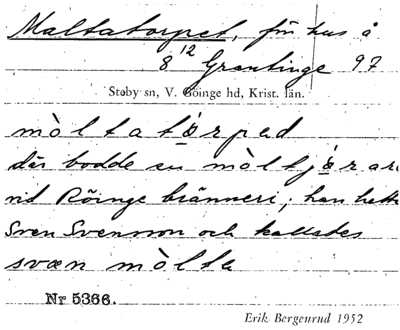 Maltatorpet, för hus å
8 12 Grantinge 97
Stoby sn, V. Göinge hd, Krist. län.
mòltatǫrped
där bodde en mòltjǫ́rare
vid Röinge bränneri; han hette
Sven Svensson och kallades
svæn mòlta
Nr 5366.
Erik Bergenrud 1952